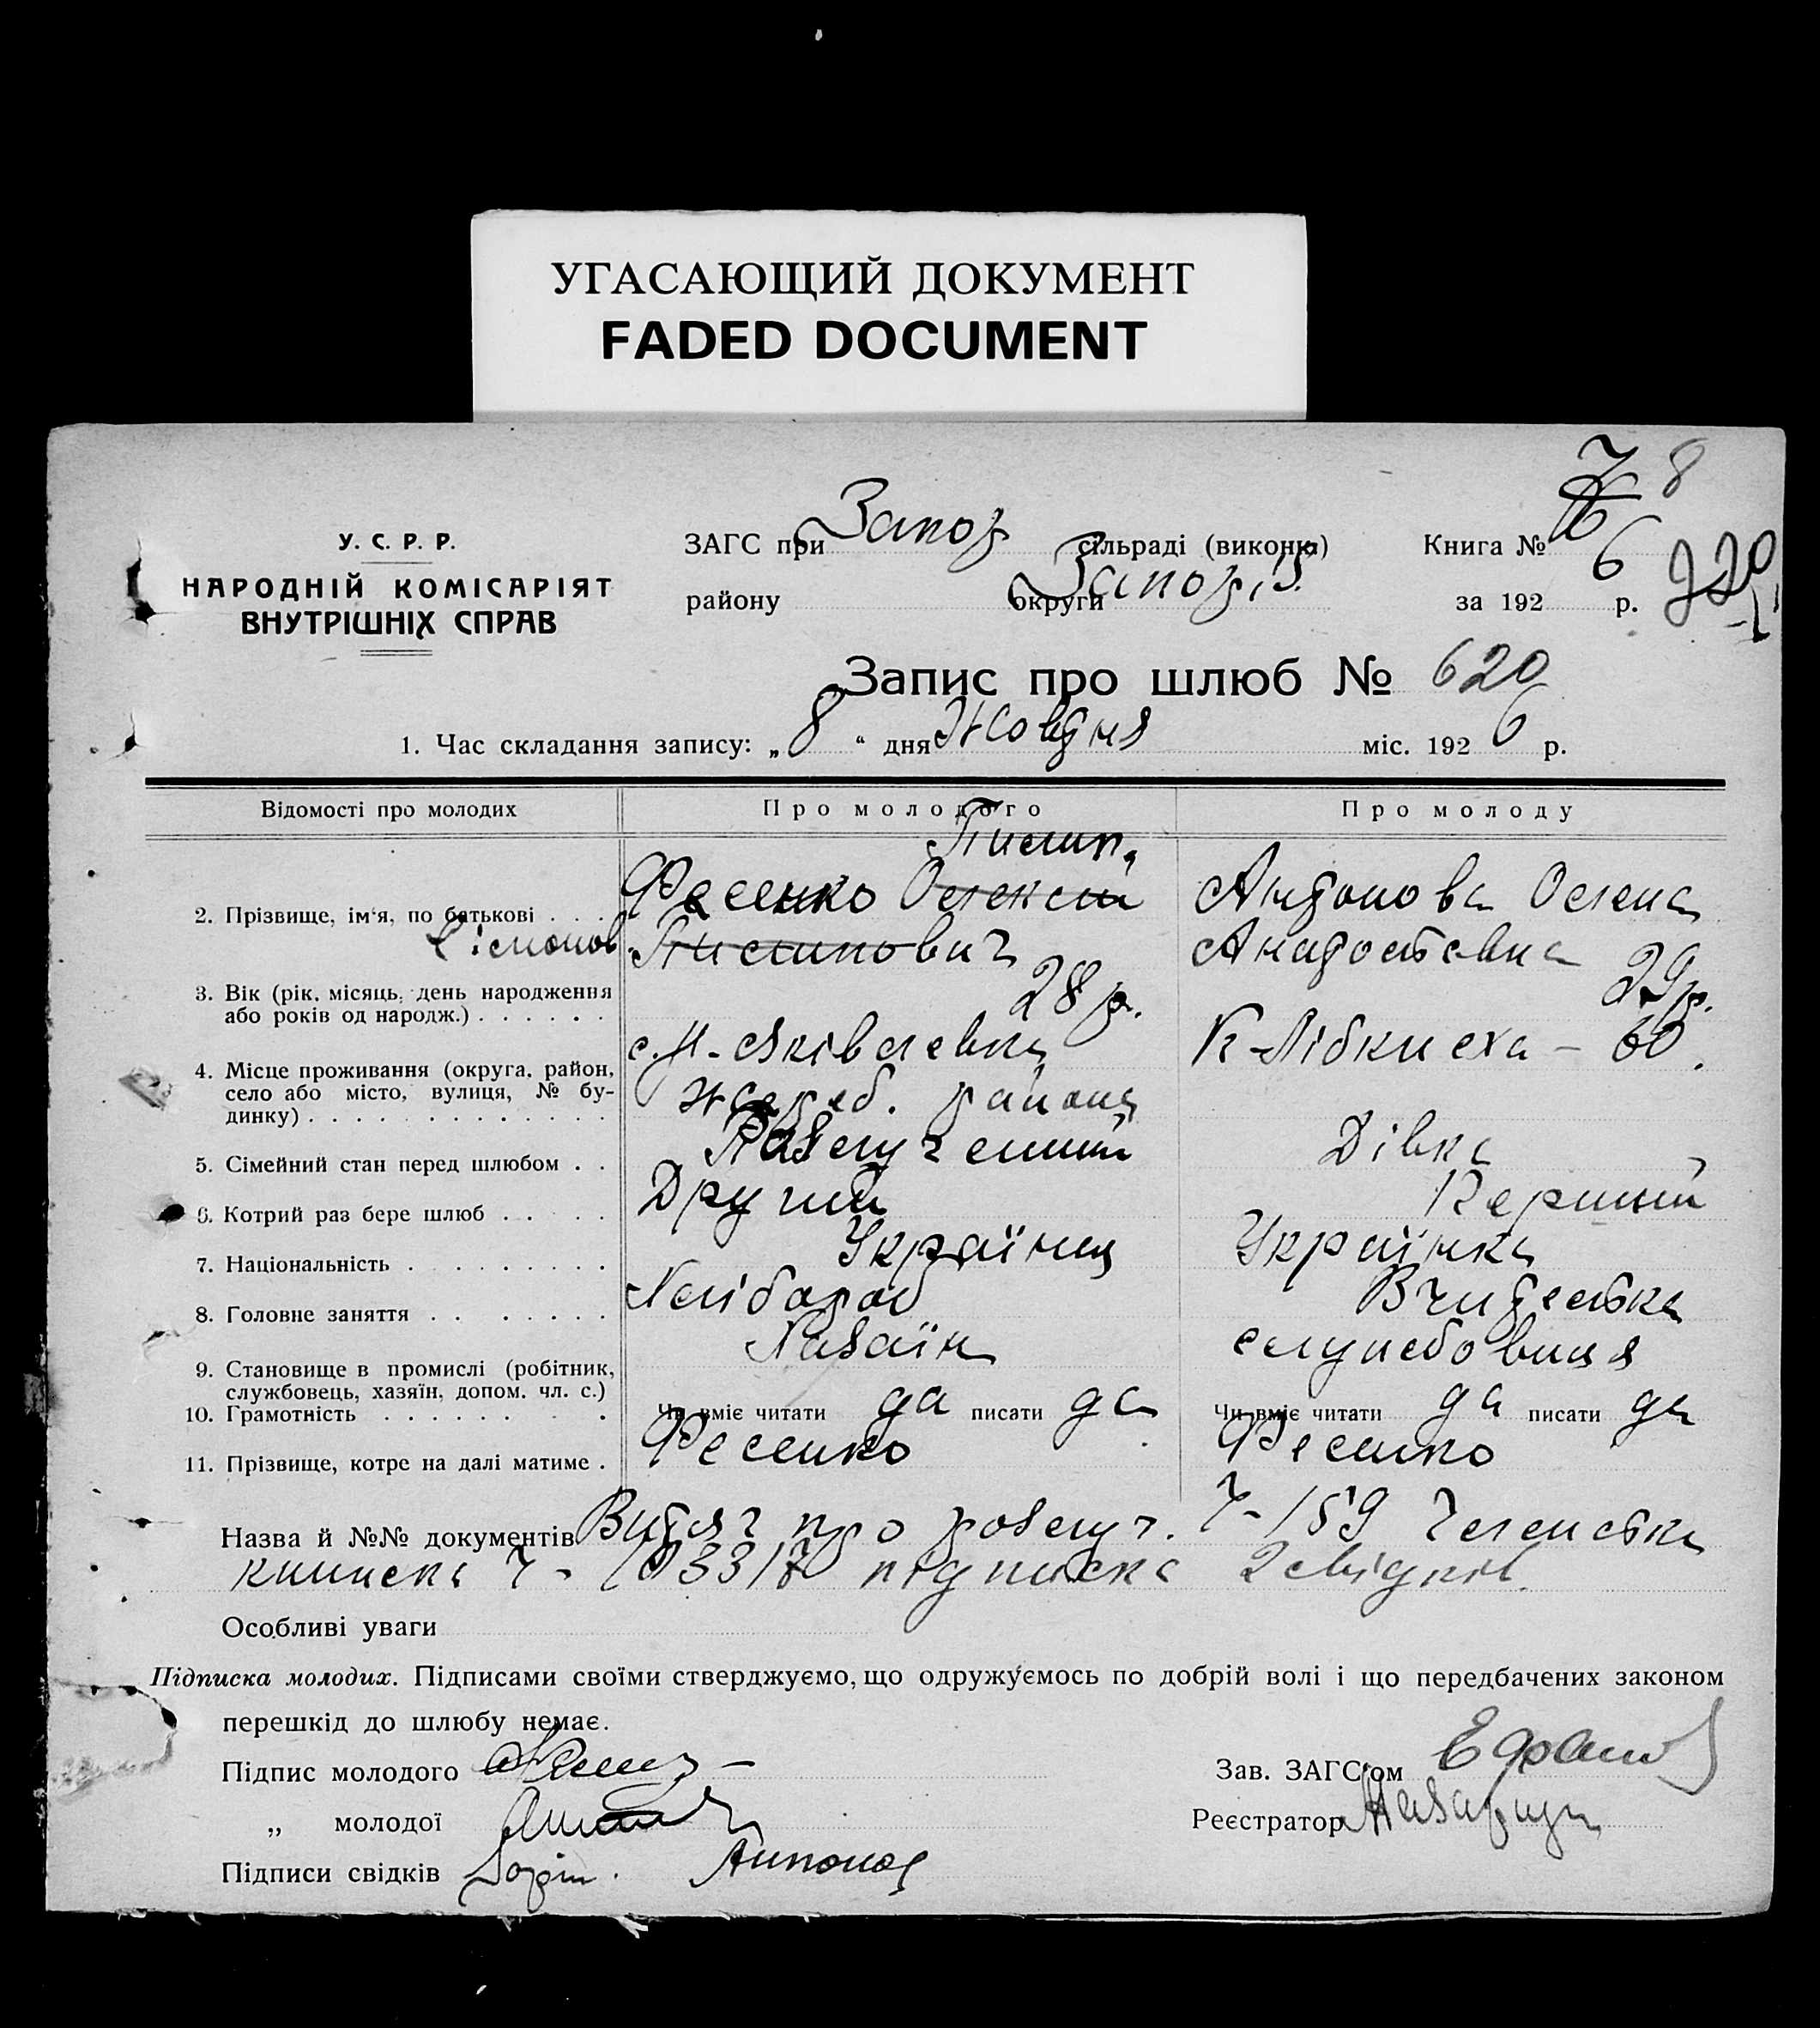 УГАСАЮЩИЙ ДОКУМЕНТ
FADED DOCUMENT
У. С. Р. Р.
НАРОДНІЙ КОМІСАРІЯТ
ВНУТРІШНІХ СПРАВ
ЗАГС при Запор сільраді (виконк) Книга № 8
району округи Запоріз. за 192 6 р.
Запис про шлюб № 620
1. Час складання запису: „ 8 “ дня Жовтня міс. 192 6 р.
Відомості про молодих Про молодого Про молоду
Пилип
2. Прізвище, ім‘я, по батькові . . . Фесенко Олексій Антонова Олена
Пилипович
3. Вік (рік. місяць, день народження 28 р. 29 р.
або років од народж.) . . . . . .
4. Місце проживання (округа, район, с. М-Яківлевка – 60
село або місто, вулиця, № бу- Жереб. района
динку) . . . . . . . . . . . . .
5. Сімейний стан перед шлюбом . . Розлученний Дівка
6. Котрий раз бере шлюб . . . . Другий Перший
7. Національність . . . . . . . . . Українец Українка
8. Головне заняття . . . . . . . . Хлібороб Вчителька
9. Становище в промислі (робітник, Хазаїн службовиця
службовець, хазяїн, допом. чл. с.)
10. Грамотність . . . . . . . . Чи вміє читати да писати да Чи вміє читати да писати да
11. Прізвище, котре на далі матиме . Фесенко Фесенко
Назва й №№ документів Витяг про розлуч. Ч-159 Членська
книжка Ч - підписка 2 свідків.
Особливі уваги
Підписка молодих. Підписами своїми стверджуємо, що одружуємось по добрій волі і що передбачених законом
перешкід до шлюбу немає.
Підпис молодого Зав. ЗАГС‘ом
„ молодої Реєстратор
Підписи свідків